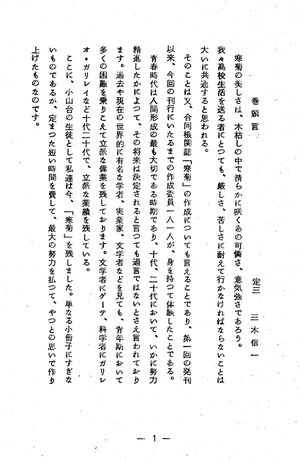 巻頭言
定三 三木信一
寒菊の美しさは、木枯しの中で清らかに咲くあの可憐さ、意気強さであろう。
我々高校生活を送る者にとっても、厳しさ、苦しさに耐えて行かなければならないことは
大いに共通すると思われる。
そのことは又、合同機関誌「寒菊」の作成についても言えることであり、第一回の発刊
以来、今回の刊行にいたるまでの作成委員一人一人が、身を持つて体験したことである。
青春時代は人間形成の最も大切である時期であり、十代、二十代において、いかに努力
精進したかによって、その将来は決定されると言つても過言ではないとさえ言われており
ます。過去や現在の世界的に有名な学者、実業家、文学者などを見ても、青年期において
多くの困難を乗りこえて立派な偉業を残しております。文学者にゲーテ、科学者にガリレ
オ・ガリレイなど十代二十代で、立派な業績を残している。
ここに、小山台の生徒として私達は今、「寒菊」を残しました。単なる小冊子にすぎな
いものであるが、定まつた短い時間を費して、最大の努力を払つて、やつとの思いで作り
上げたものなのです。
— 1 —